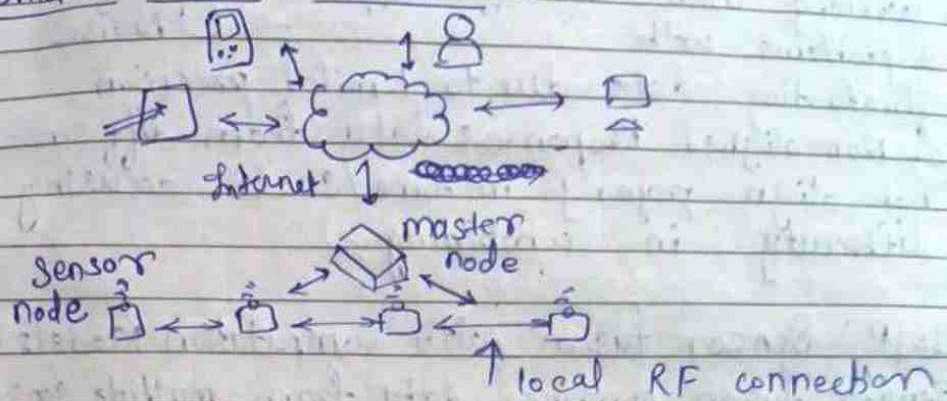 Internet
master
node
sensor
node
local RF connection